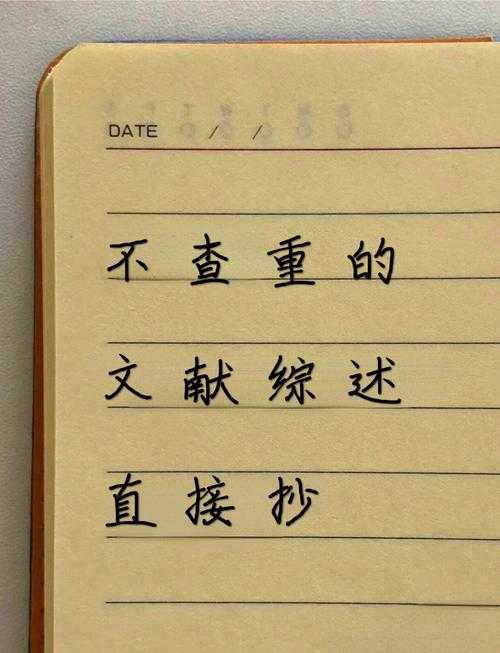 DATE / /
不查重的
文献综述
直接抄